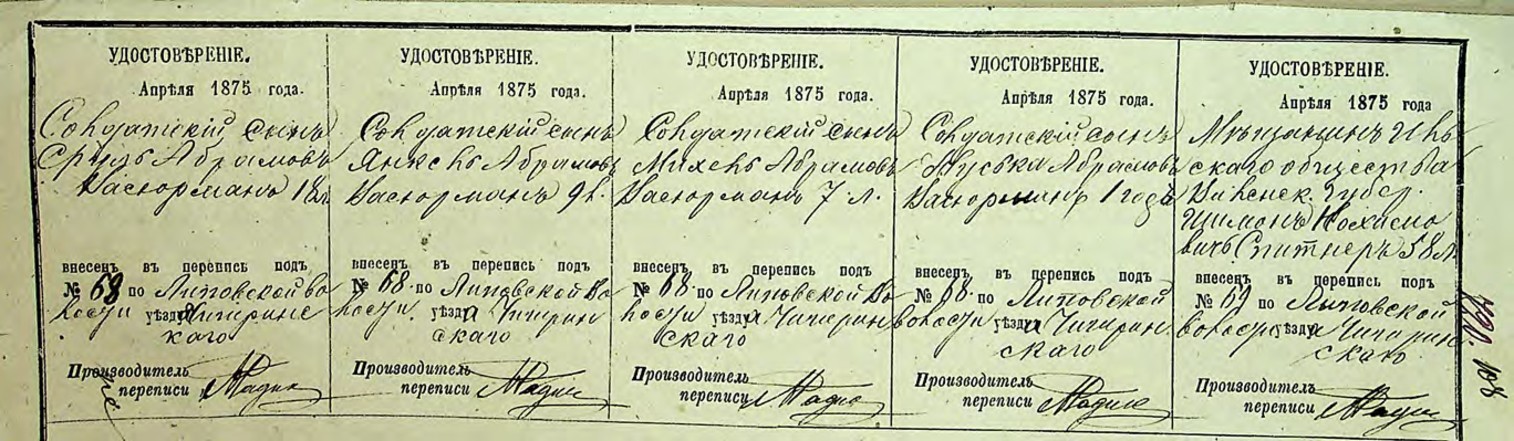 УДОСТОВѢРЕНІЕ.
Апрѣля 1875 года.
Солдатскій сынъ
Абрамовъ
Вастерманъ 18 л.
внесенъ въ перепись подъ
№ 68 по Липовской во
лости уѣзду Чигирин
скаго
Производитель
переписи
УДОСТОВѢРЕНІЕ.
Апрѣля 1875 года.
Солдатскій сынъ
Янкель Абрамовъ
9 л.
внесенъ въ перепись подъ
№ 68 по Липовской во
лости уѣзда Чигирин
скаго
Производитель
переписи
УДОСТОВѢРЕНІЕ.
Апрѣля 1875 года.
Солдатскій сынъ
Михель Абрамовъ
7 л.
внесенъ въ перепись подъ
№ 68 по Липовской во
лости уѣзда Чигирин
скаго
Производитель
переписи
УДОСТОВѢРЕНІЕ.
Апрѣля 1875 года.
Солдатскій сынъ
Абрамовъ
1 годъ
внесенъ въ перепись подъ
№ 68 по Липовской
волости уѣзда Чигирин
скаго
Производитель
переписи
УДОСТОВѢРЕНІЕ.
Апрѣля 1875 года
Мѣщанинъ
скаго общества
Виленск. губер.
Шимонъ
вичъ Спитнеръ 58 л.
внесенъ въ перепись подъ
№ 69 по Липовской
волости уѣзда Чигирин
скаго
Производитель
переписи